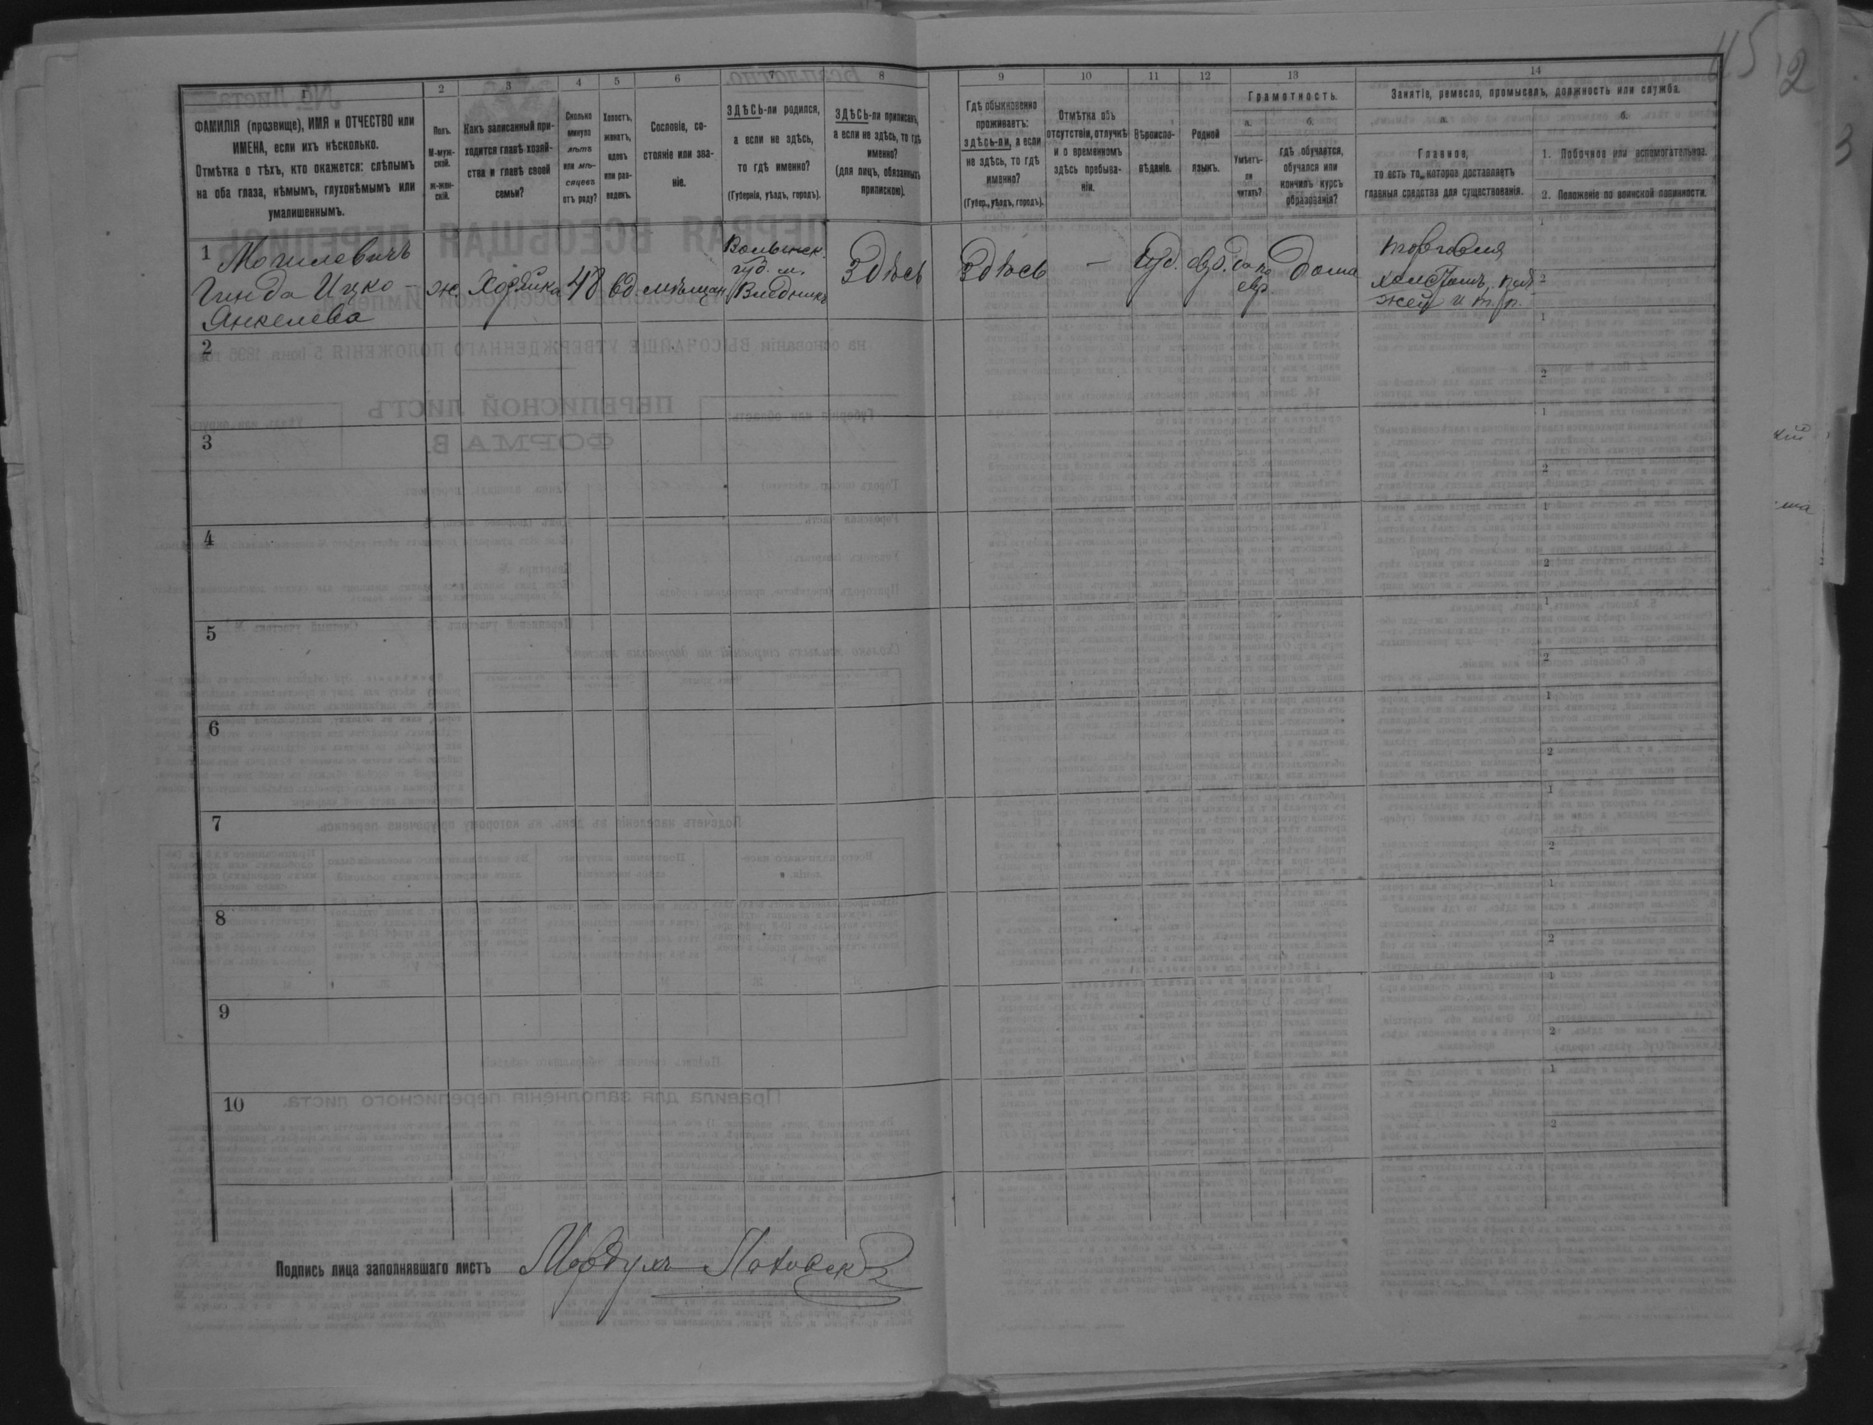 115 2
1 2 3 4 5 6 7 8 9 10 11 12 13 14
ФАМИЛІЯ (прозвище), ИМЯ и ОТЧЕСТВО или
ИМЕНА, если ихъ нѣсколько.
Отмѣтка о тѣхъ, кто окажется: слѣпымъ
на оба глаза, нѣмымъ, глухонѣмымъ или
умалишеннымъ.
Полъ.
М-муж-
ской.
Ж-жен-
скій.
Какъ записанный при-
ходится главѣ хозяй-
ства и главѣ своей
семьи?
Сколько
минуло
лѣтъ
или мѣ-
сяцевъ
отъ роду?
Холостъ,
женатъ,
вдовъ
или раз-
веденъ.
Сословіе, со-
стояніе или зва-
ніе.
ЗДѢСЬ-ли родился,
а если не здѣсь,
то гдѣ именно?
(Губернія, уѣздъ, городъ).
ЗДѢСЬ-ли приписанъ,
а если не здѣсь, то гдѣ
именно?
(для лицъ, обязанныхъ
припискою).
Гдѣ обыкновенно
проживаетъ:
здѣсь-ли, а если
не здѣсь, то гдѣ
именно?
(Губер., уѣздъ, городъ).
Отмѣтка объ
отсутствіи, отлучкѣ
и о временномъ
здѣсь пребыва-
ніи.
Вѣроиспо-
вѣданіе.
Родной
языкъ.
Грамотность.
а.
Умѣетъ-
ли
читать?
б.
гдѣ обучается,
обучался или
кончилъ курсъ
образованія?
Занятіе, ремесло, промыселъ, должность или служба.
а.
Главное,
то есть то, которое доставляетъ
главныя средства для существованія.
б.
1. Побочное или вспомогательное.
2. Положеніе по воинской повинности.
1 Могилевичъ
Гинда Ицко-
Янкелева
ж
Хозяйка
48
вд
мѣщан
Волынск.
губ. м.
Здѣсь
Здѣсь
—
Іуд.
Да по
евр
Дома
торговля
и т. п.
2
3
4
5
6
7
8
9
10
Подпись лица заполнявшаго листъ Мордухъ